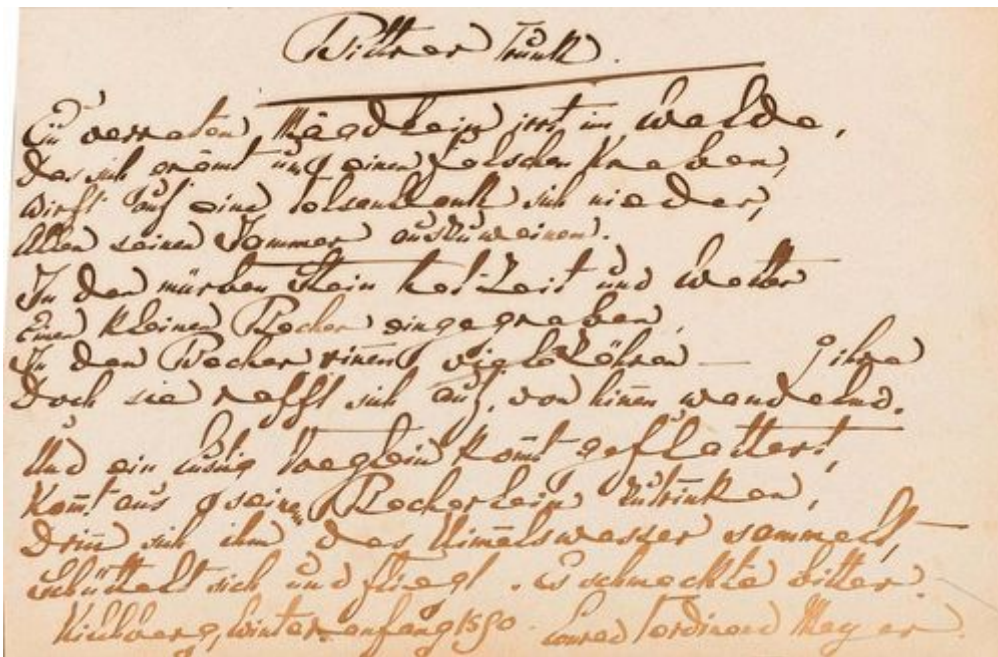 Bittrer Trunk.
Ein verraten Mägdlein irrt im Walde,
Das sich grämt um einen falschen Knaben,
Wirft auf eine Felsenbank sich nieder,
Allen seinen Jammer auszuweinen.
In den mürben Stein hat Zeit und Wetter
Einen kleinen Becher eingegraben,
In den Becher rinnen viele Zähren — ihre
Doch sie rafft sich auf, von hinnen wandelnd.
Und ein lustig Voeglein kom̅t geflattert,
Kom̅t aus seinem Becherlein zu trinken,
Drin̅ sich ihm das Him̅elswasser sammelt,
Schüttelt sich und fliegt. Es schmeckte bitter.
Kilchberg, Winteranfang 1890. Conrad Ferdinand Meyer.